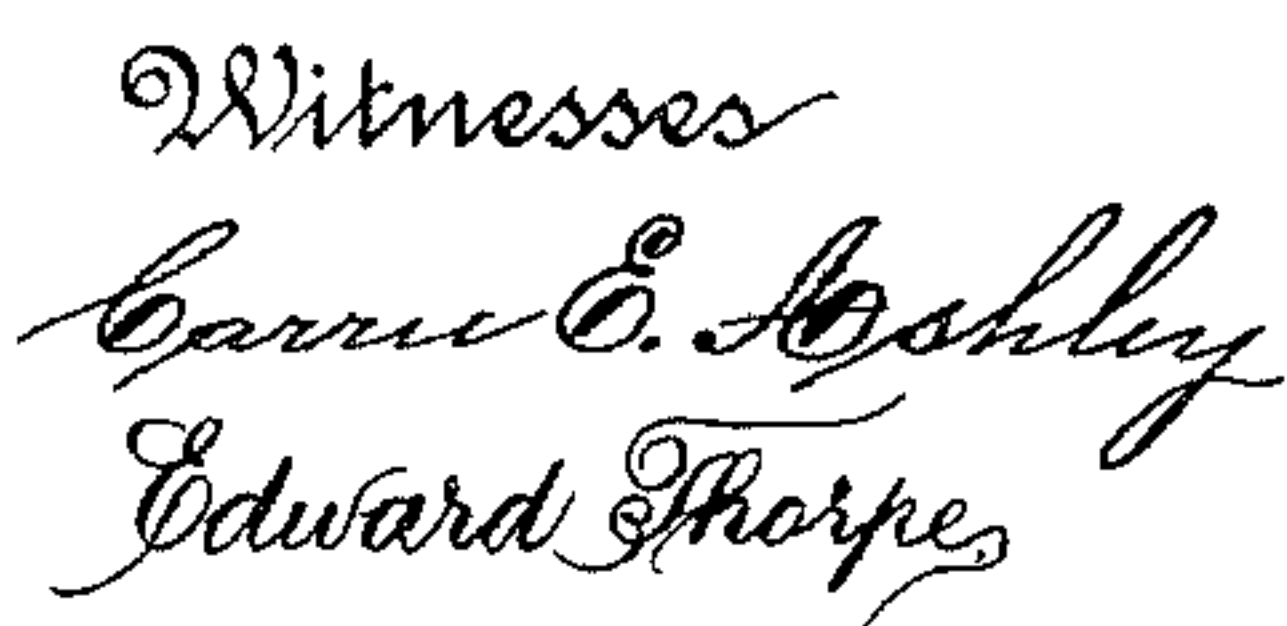 Witnesses
Carrie E. Ashley
Edward Thorpe.